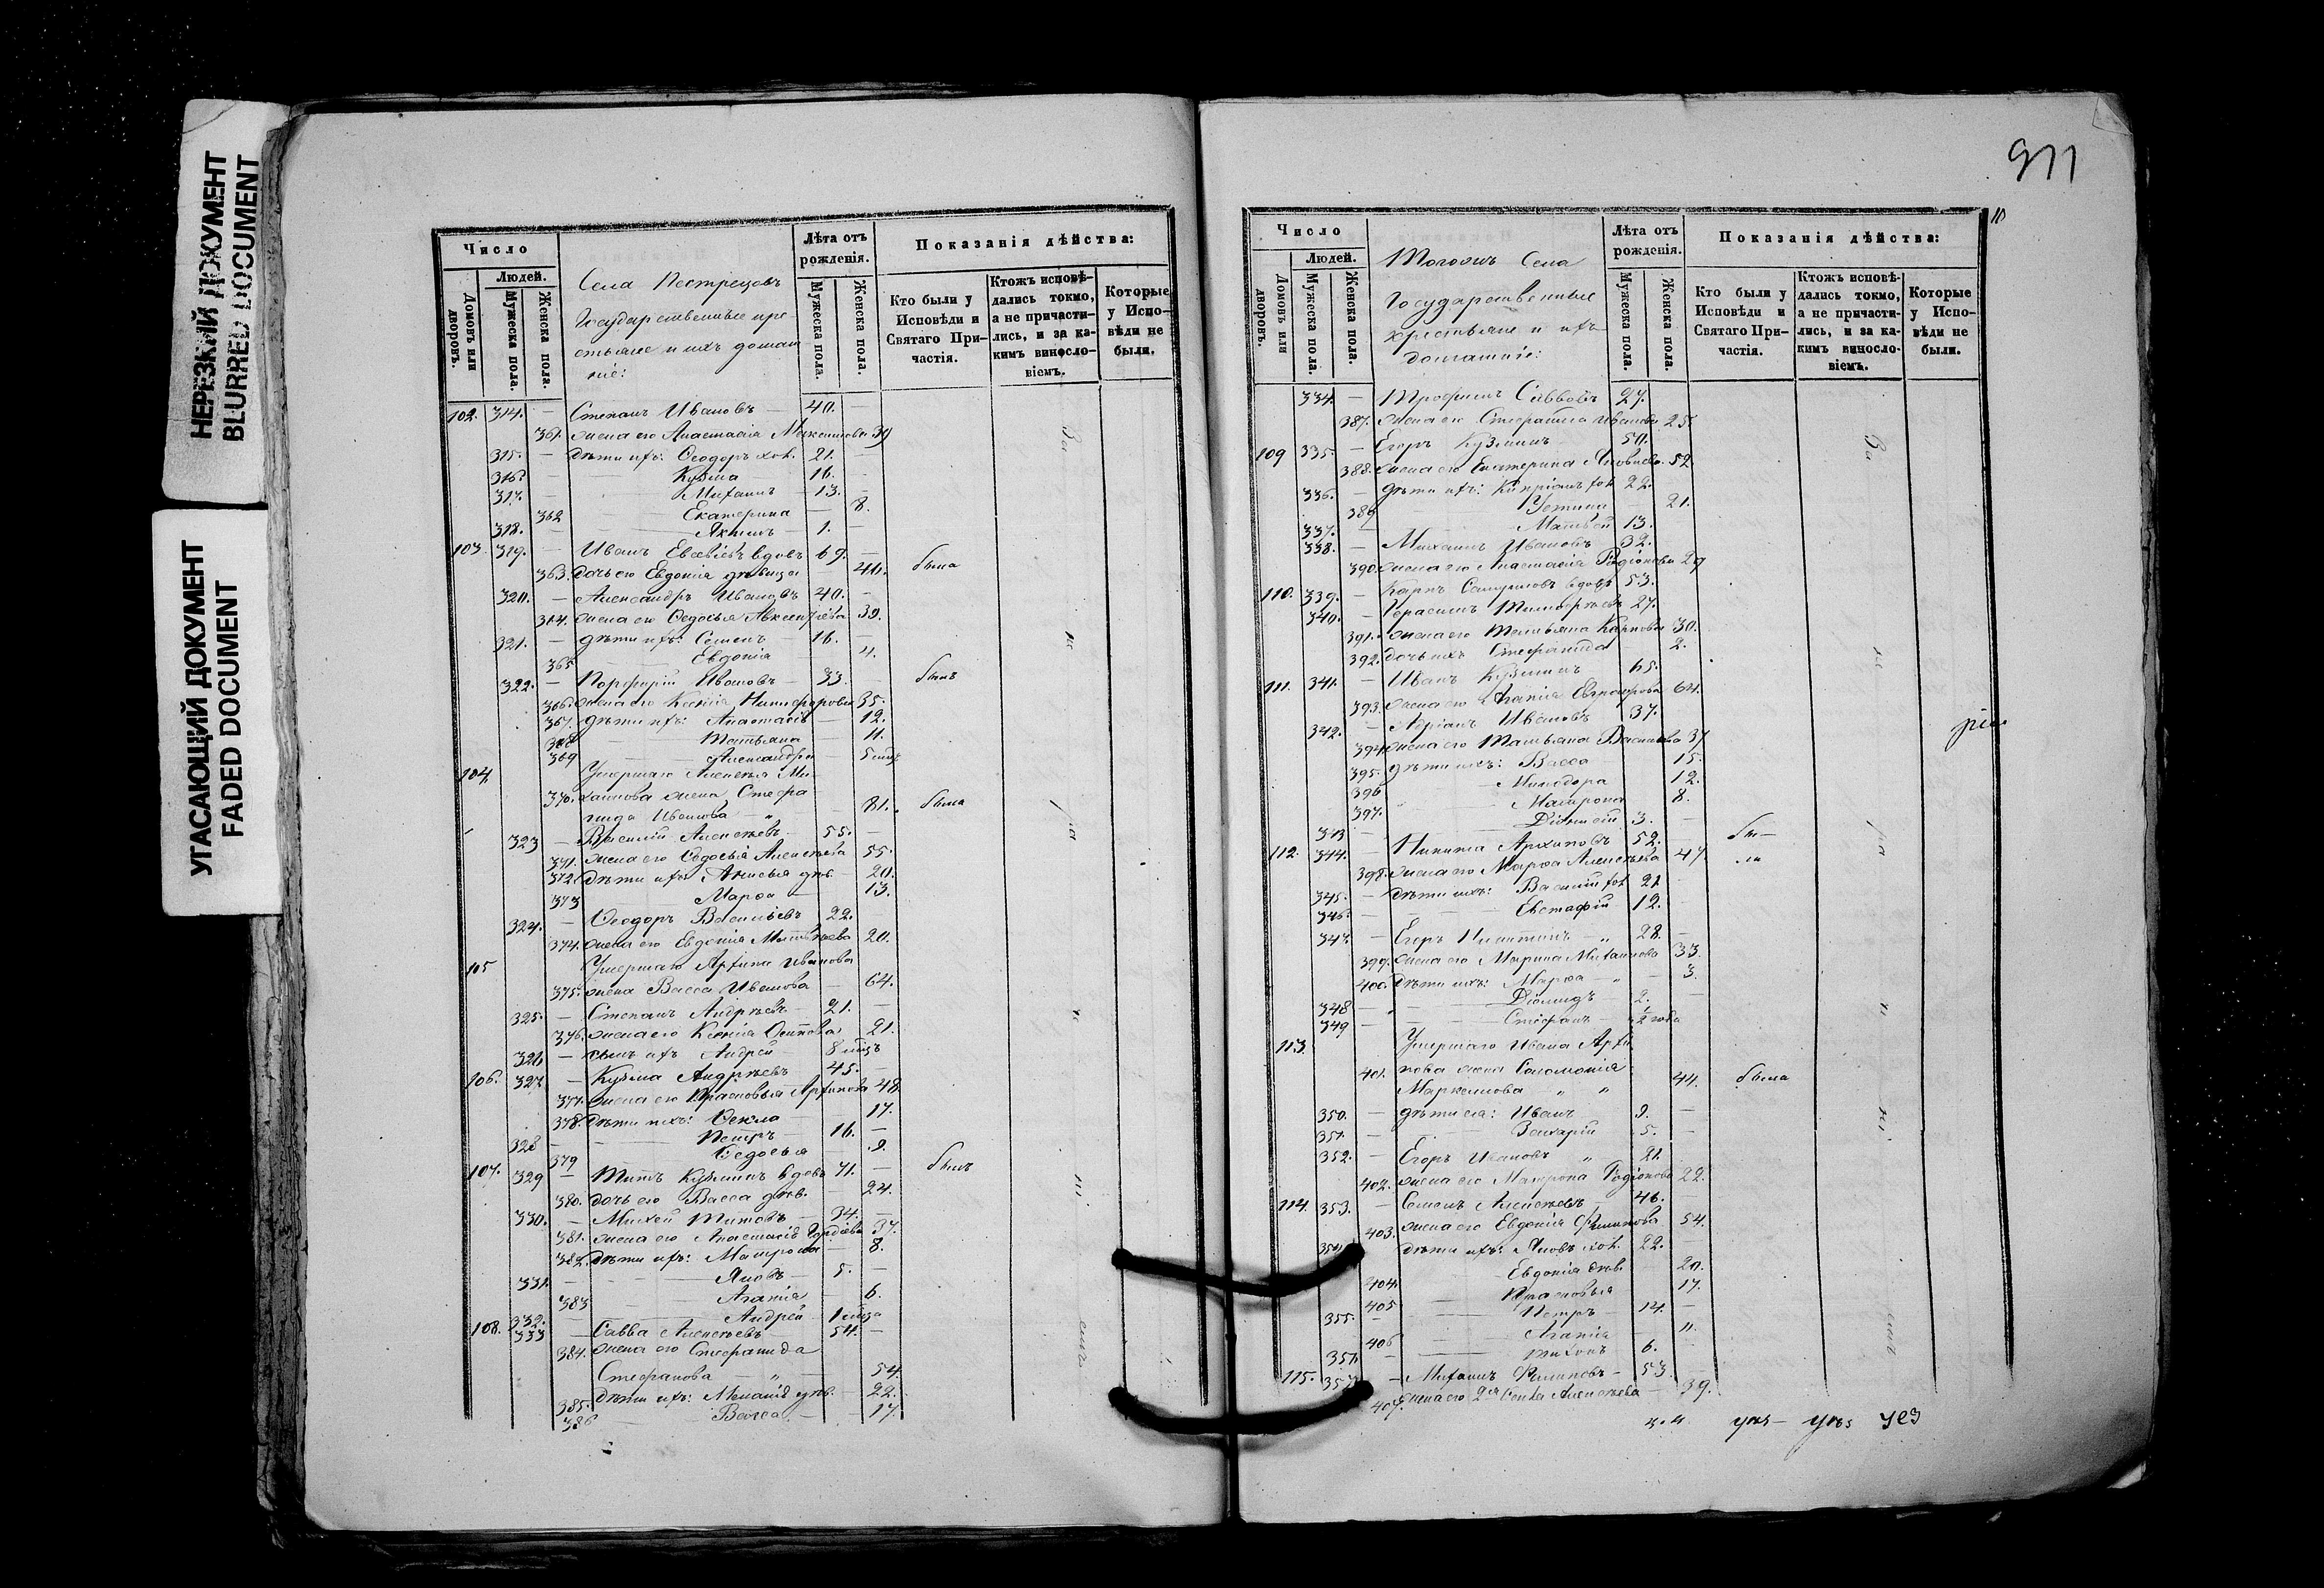 НЕРЕЗКИЙ ДОКУМЕНТ
BLURRED DOCUMENT
УГАСАЮЩИЙ ДОКУМЕНТ
FADED DOCUMENT
Число
Людей.
Домовъ или дворовъ.
Мужеска пола.
Женска пола.
Села Пестрецовъ
Государственные кре
стьяне и ихъ домаш
ніе:
Лѣта отъ рожденія.
Мужеска пола.
Женска пола.
Показанія дѣйства:
Кто были у Исповѣди и Святаго При-частія.
Ктожъ исповѣ-дались токмо, а не причасти-лись, и за ка-кимъ винословіемъ.
Которые у Испо-вѣди не были.
102. 314. — Степанъ Ивановъ — 40. —
361. жена его Анастасія 39
315. — дѣти ихъ: Ѳеодоръ хол. 21. —
316. Кузма 16.
317. — Михаилъ — 13. —
362 Екатерина — 8.
318. — Якимъ — 1. —
103. 319. — Иванъ вдовъ 69. —
363. дочь его Евдокія дѣвица была
320. — Александръ Ивановъ 40. —
364. жена его Ѳедосья 39.
321. — дѣти ихъ: Семенъ — 16. —
365 Евдокія 4.
322. — Порфирій Ивановъ — 33. — былъ
366. жена его Ксенія Никифорова 35.
367. дѣти ихъ: Анастасія — 12.
368 Татьяна — 11.
369 Александра — 5
104. Умершаго Алексѣя Ми
370. хаилова жена Стефа
нида Иванова — 81. была
323 — Василій Алексѣевъ 55. —
371. жена его Ѳедосья Алексѣева 55.
372. дѣти ихъ Анисья дѣв. 20.
373 Марѳа — 13.
324. — Ѳеодоръ Васильевъ 22. —
374. жена его Евдокія Матвѣева 20.
105 Умершаго Архипа Иванова
375. жена Васса Иванова — 64.
325. — Степанъ Андреевъ — 21. —
376. жена его Ксенія Осипова 21.
326 — сынъ ихъ Андрей — 8
106. 327 — Кузма Андреевъ 45. —
377. жена его Прасковья Архипова 48.
378. дѣти ихъ: Ѳекла — 17.
328 Петръ — 16. —
379 Ѳедосья 9.
107. 329 — Титъ Кузминъ вдовъ 71. — былъ
380. дочь его Васса дѣв. — 24.
330. — Михей Титовъ — 34. —
381. жена его Анастасія 37.
382. дѣти ихъ: Матрона — 8.
331. — Яковъ — 5. —
383 Агапія — 6.
332. Андрей 1
108. 333 — Савва Алексѣевъ — 54. —
384. жена его Стефанида
Стефанова — 54.
385. дѣти ихъ: Меланія дѣв. — 22.
386 Васса — 17.
911
Число
Людей.
Домовъ или дворовъ.
Мужеска пола.
Женска пола.
Тогожъ Села
Государственные
крестьяне и ихъ
домашніе:
Лѣта отъ рожденія.
Мужеска пола.
Женска пола.
Показанія дѣйства:
Кто были у Исповѣди и Святаго При-частія.
Ктожъ исповѣ-дались токмо, а не причасти-лись, и за ка-кимъ винословіемъ.
Которые у Испо-вѣди не были.
334. — Трофимъ Саввовъ 27.
387. жена его Стефанида Иванова 25.
109 335. — Егоръ Кузминъ 50.
388. жена его Екатерина Яковлева 52.
336. — дѣти ихъ: Кипріанъ хол. 22.
389 Устина 21.
337. — Матвѣй 13.
338. — Михаилъ Ивановъ 32.
390. жена его Анастасія Родіонова 29
110. 339. — Карпъ вдовъ 53.
340. — Герасимъ 27.
391. жена его Татьяна Карпова 30.
392. дочь ихъ Стефанида — 2.
111. 341. — Иванъ Кузминъ 65.
393. жена его Агапія 64.
342. — Адріанъ Ивановъ 37.
394. жена его Татьяна Васильева 37
395. дѣти ихъ: Васса 15.
396 Минодора 12.
397. Матрона 8.
343 — Діонисій 3. —
112. 344. — Никита Архиповъ 52.
398. жена его Марѳа Алексѣева 47.
345. — дѣти ихъ: Василій хол. 21
346. Евстафій 12.
347. — Егоръ Никитинъ 28. —
399. жена его Марина Михаилова 33.
400. дѣти ихъ: Марѳа — 3.
348 — Діомидъ — 2. —
349 — Стефанъ — ½ года
113. Умершаго Ивана Архи
401. пова жена Соломонія
Маркелова 44. была
350. — дѣти ея: Иванъ 9. —
351. — Захарій 5. —
352. — Егоръ Ивановъ 21.
402. жена его Матрона Родіонова 22.
114. 353. — Семенъ Алексѣевъ — 46.
403. жена его Евдокія Филипова 54.
354. дѣти ихъ: Яковъ хол. 22. —
404. Евдокія дѣв. 20.
405 Прасковья 17.
355. — Петръ 14. —
406 Агапія — 11.
Тихонъ 6.
115. 357 — Михаилъ Филиповъ — 53. —
407. жена его 2я Алексѣева — 39.